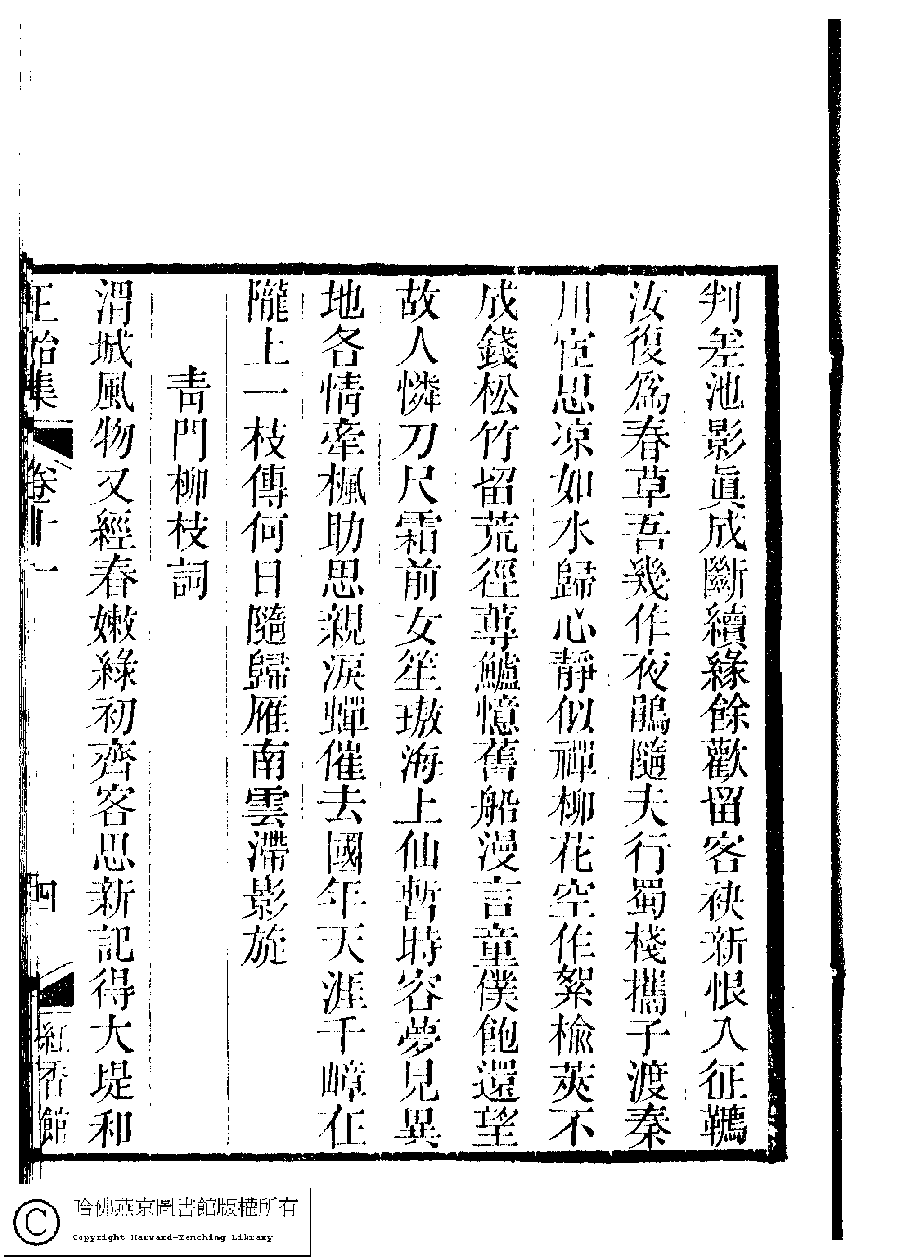 判差池影眞成斷續緣餘歡留客袂新恨入征鞯
汝復爲春草吾幾作夜鵑隨夫行蜀棧攜子渡秦
川宦思凉如水歸心靜似禪柳花空作絮楡莢不
成錢松竹留荒徑蓴鱸憶舊船漫言童僕飽還望
故人憐刀尺霜前女笙璈海上仙暫時容夢見異
地各情牽楓助思親淚蟬催去國年天涯千嶂在
隴上一枝傳何日隨歸雁南雲滯影旋
青門柳枝詞
渭城風物又經春嫩綠初齊客思新記得大堤和
正始集 卷十一 四 紅香館
哈佛燕京圖書館版權所有
Copyright Harvard-Yenching Library